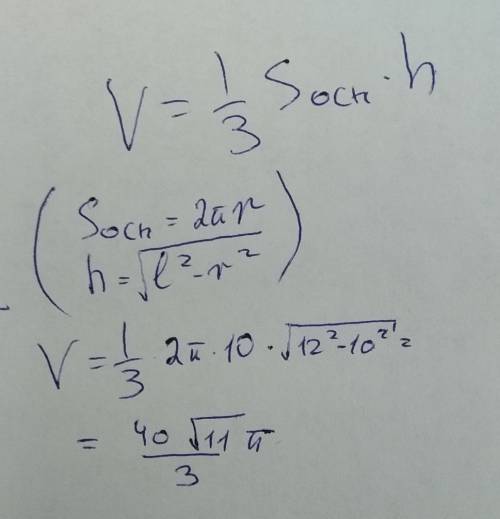 V = 1/3 Sосн · h
(Sосн = 2πr
h = √(l² - r²))
V = 1/3 · 2π · 10 · √(12² - 10²) =
= 40√11 π / 3